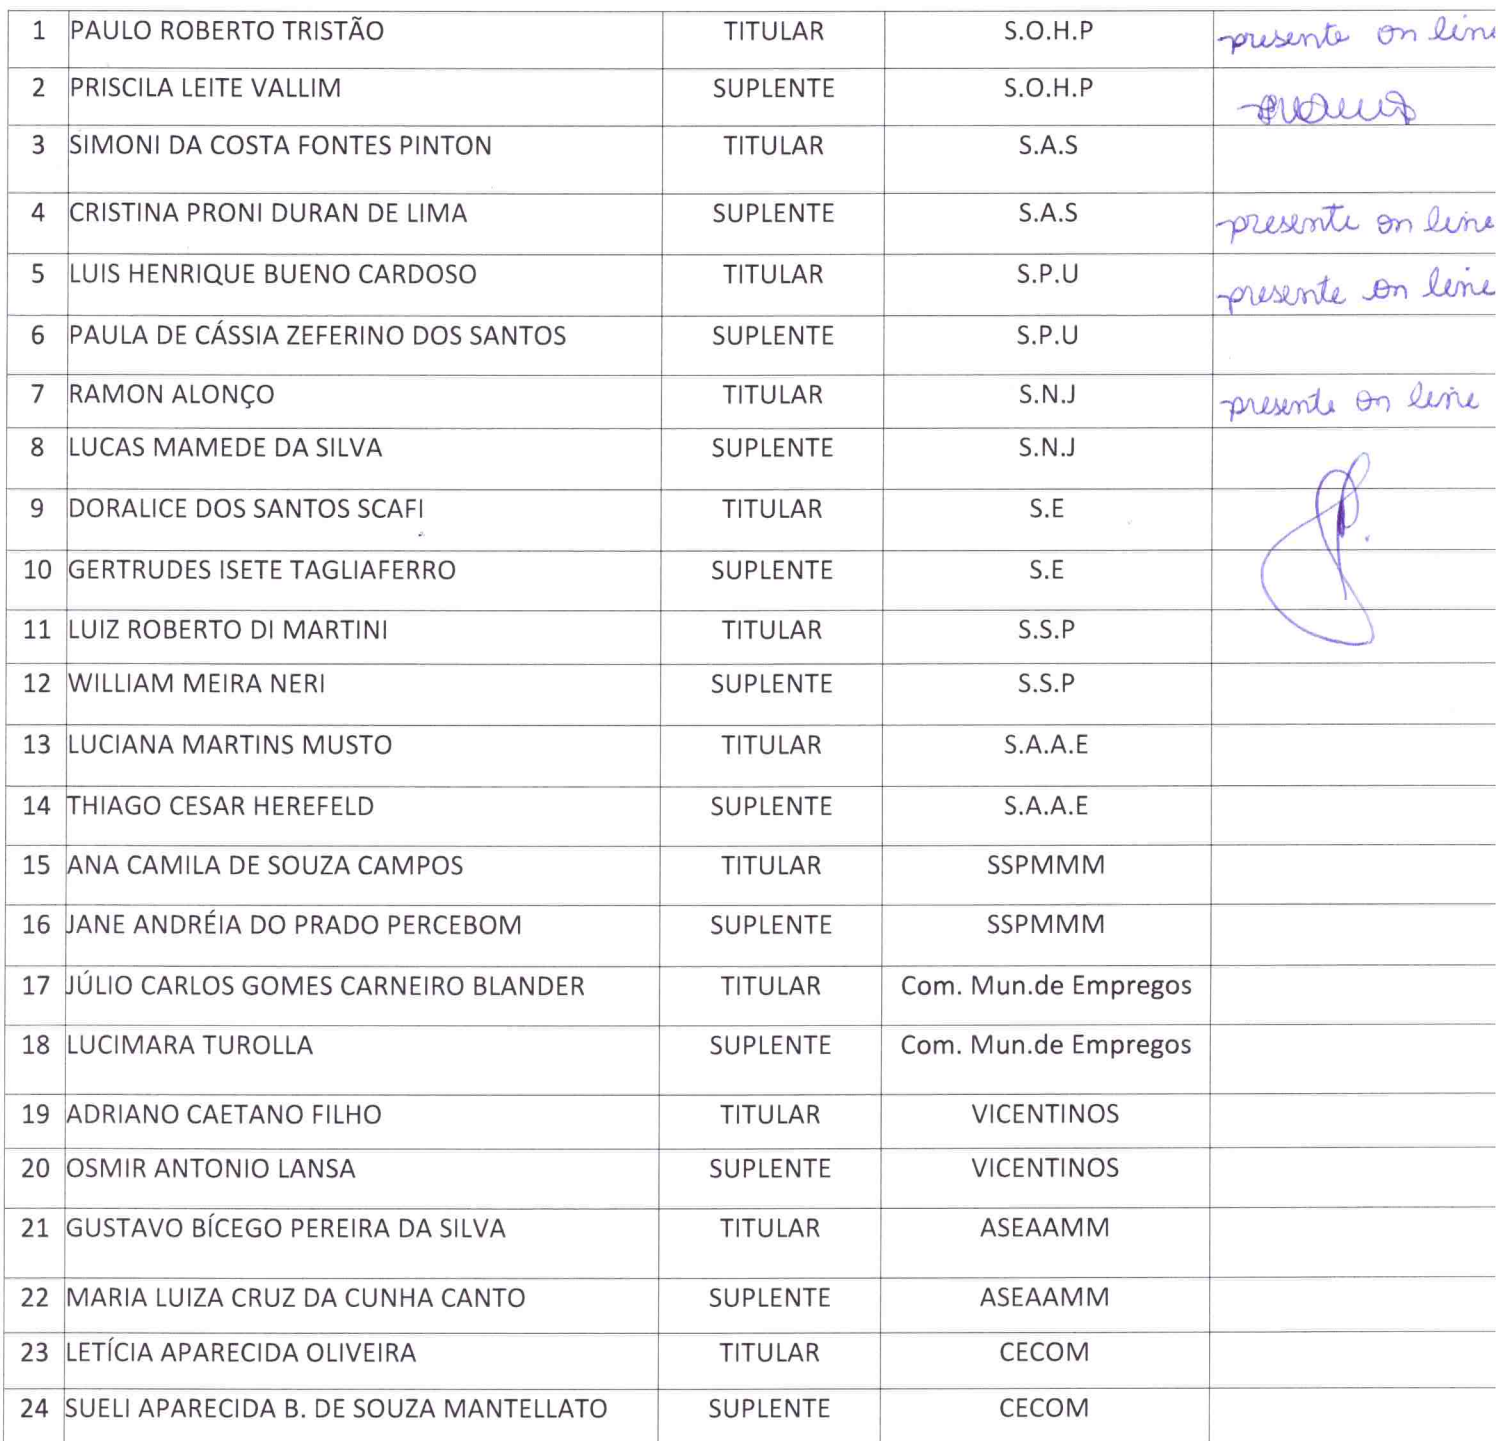 1 PAULO ROBERTO TRISTÃO TITULAR S.O.H.P presente on line
2 PRISCILA LEITE VALLIM SUPLENTE S.O.H.P
3 SIMONI DA COSTA FONTES PINTON TITULAR S.A.S
4 CRISTINA PRONI DURAN DE LIMA SUPLENTE S.A.S presente on line
5 LUIS HENRIQUE BUENO CARDOSO TITULAR S.P.U presente on line
6 PAULA DE CÁSSIA ZEFERINO DOS SANTOS SUPLENTE S.P.U
7 RAMON ALONÇO TITULAR S.N.J presente on line
8 LUCAS MAMEDE DA SILVA SUPLENTE S.N.J
9 DORALICE DOS SANTOS SCAFI TITULAR S.E
10 GERTRUDES ISETE TAGLIAFERRO SUPLENTE S.E
11 LUIZ ROBERTO DI MARTINI TITULAR S.S.P
12 WILLIAM MEIRA NERI SUPLENTE S.S.P
13 LUCIANA MARTINS MUSTO TITULAR S.A.A.E
14 THIAGO CESAR HEREFELD SUPLENTE S.A.A.E
15 ANA CAMILA DE SOUZA CAMPOS TITULAR SSPMMM
16 JANE ANDRÉIA DO PRADO PERCEBOM SUPLENTE SSPMMM
17 JÚLIO CARLOS GOMES CARNEIRO BLANDER TITULAR Com. Mun.de Empregos
18 LUCIMARA TUROLLA SUPLENTE Com. Mun.de Empregos
19 ADRIANO CAETANO FILHO TITULAR VICENTINOS
20 OSMIR ANTONIO LANSA SUPLENTE VICENTINOS
21 GUSTAVO BÍCEGO PEREIRA DA SILVA TITULAR ASEAAMM
22 MARIA LUIZA CRUZ DA CUNHA CANTO SUPLENTE ASEAAMM
23 LETÍCIA APARECIDA OLIVEIRA TITULAR CECOM
24 SUELI APARECIDA B. DE SOUZA MANTELLATO SUPLENTE CECOM